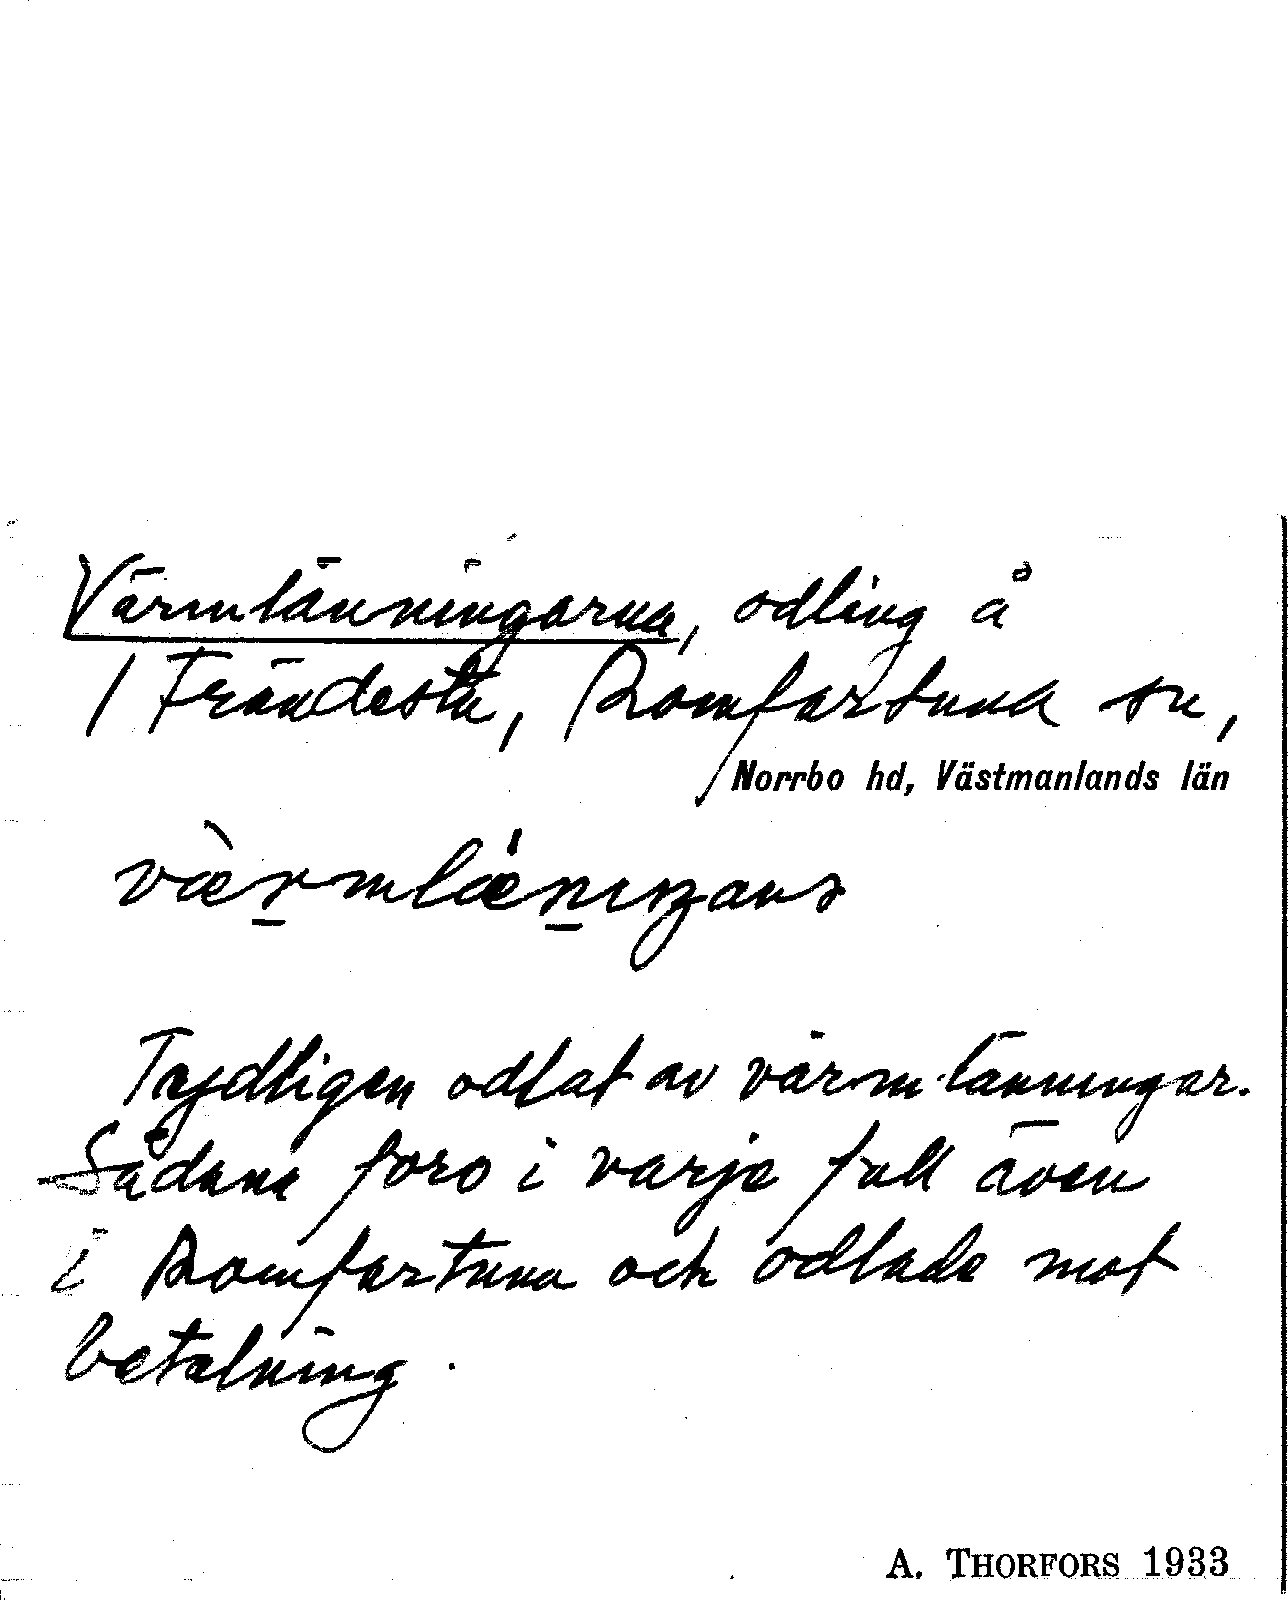 Värmlänningarna, odling å
/ Frändesta, Romfartuna sn,
Norrbo hd, Västmanlands län
Tydligen odlat av värmlänningar.
Sådana foro i varje fall även
i Romfartuna och odlade mot
betalning.
A. THORFORS 1933